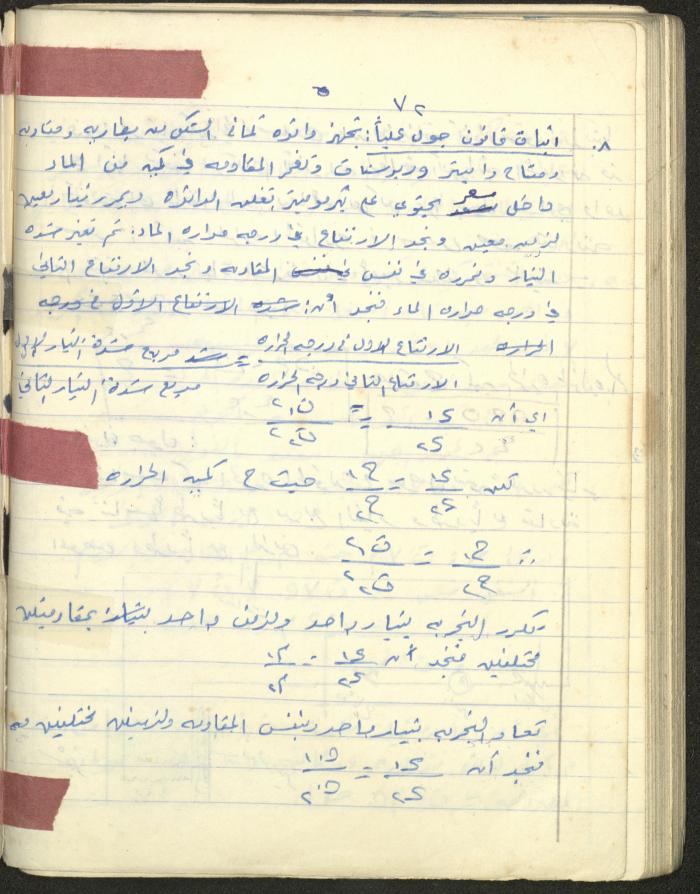 ٧٢
٨. اثبات قانون جول عملياً: تجهز دائرة تماثل الشكل من بطارية ومقاومة
ومفتاح وأمبيتر وريوستات وتغمر المقاومة في كمية من الماء
داخل مسعر يحتوي على ثرمومتر تغلق الدائرة ويمرر تيار معين
لزمن معين ونجد الارتفاع في درجة حرارة الماء: ثم تغير شدة
التيار ونمرره في نفس المقاومة ونجد الارتفاع الثاني
في درجة حرارة الماء فنجد أن: شدة الارتفاع الأول في درجة
الحرارة الارتفاع الاول في درجة الحرارة = مربع شدة التيار الأول
الارتفاع الثاني درجة الحرارة مربع شدة التيار الثاني
اي أن د١ / د٢ = ت٢١ / ت٢٢
لكن د١ / د٢ = ح١ / ح٢ حيث ح كمية الحرارة
∴ ح١ / ح٢ = ت٢١ / ت٢٢
تكرر التجربة بتيار واحد ولزمن واحد بمقاومتين
مختلفتين فنجد أن د١ / د٢ = م١ / م٢
تعاد التجربة بتيار واحد وبنفس المقاومة ولزمنين مختلفين
فنجد أن د١ / د٢ = ن١ / ن٢